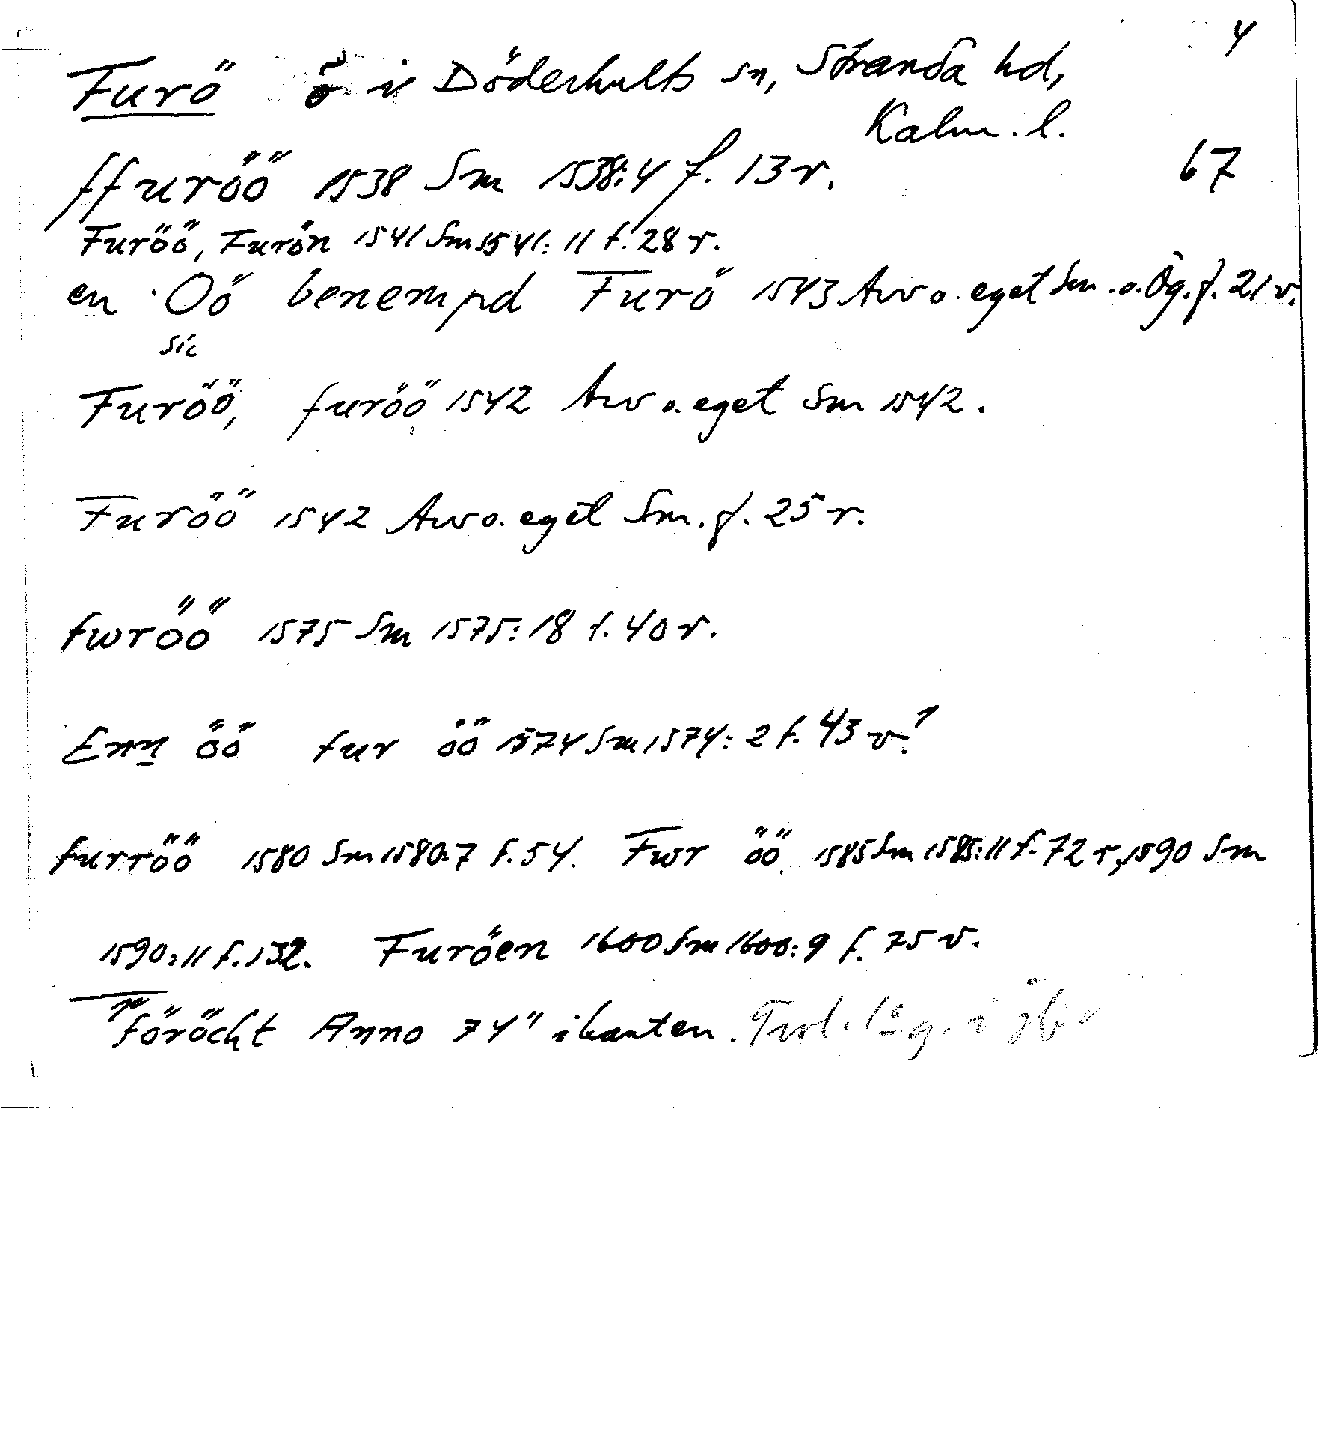 4
Furö ö i Döderhults sn, Stranda hd,
Kalm. l.
67
ffuröö 1538 Sm 1538:4 f. 13 r.
Furöö, Furön 1541 Sm 1541:11 f. 28 r.
en Oö benempd Furö 1543 Avv o. eget Sm. o. Ög. f. 21 v.
sic
Furöö, furöö 1542 Avv o. eget Sm 1542.
Furöö 1542 Avv o. eget Sm. f. 25 r.
fwröö 1575 Sm 1575:18 f. 40 r.
Enn öö fur öö 1574 Sm 1574:2 f. 43 v.
furröö 1580 Sm 1580:7 f. 54. Fwr öö 1585 Sm 1585:11 f. 72 r, 1590 Sm
1590:11 f. 132. Furöen 1600 Sm 1600:9 f. 75 v.
"föröcht Anno 74" i kanten.